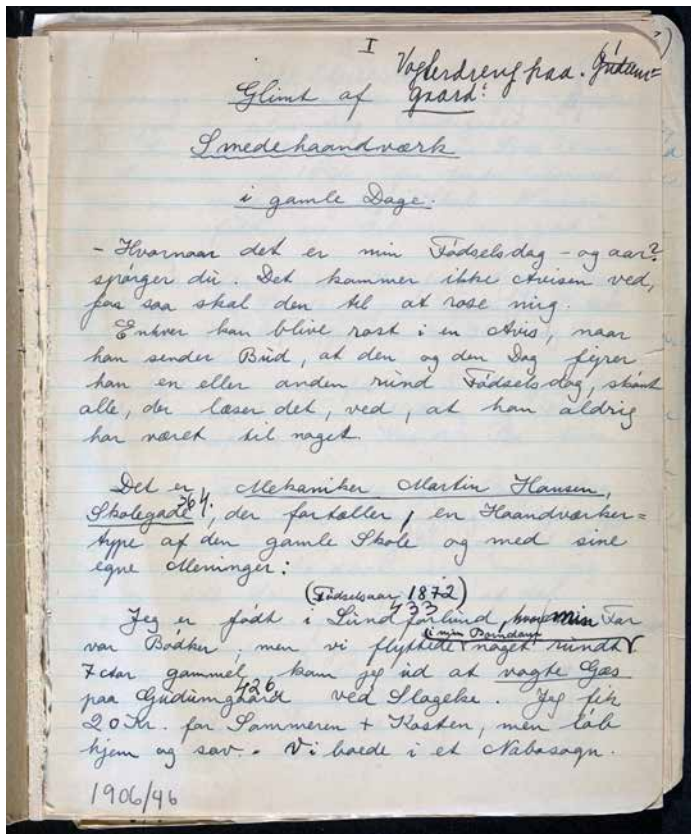 I
Vogterdreng paa Gudum=
gaard.
Glimt af
Smedehaandværk
i gamle Dage.
- Hvornaar det er min Födselsdag - og aar?
spörger du. Det kommer ikke Avisen ved,
for saa skal den til at rose mig.
Enhver kan blive rost i en Avis, naar
han sender Bud, at den og den Dag fejrer
han en eller anden rund Födselsdag, skönt
alle, der læser det, ved, at han aldrig
har været til noget.
Det er Mekaniker Martin Hansen,
Skolegade, der fortæller, en Haandværker=
type af den gamle Skole og med sine
egne Meninger:
(Födselsaar 1872)
433
Jeg er födt i Lundforlund, min Far
var Bödker, men vi flyttede noget rundt
i min Barndom
7 Aar gammel kom jeg ud at vogte Gæs
426
paa Gudumgaard ved Slagelse. Jeg fik
20 Kr. for Sommeren + Kosten, men löb
hjem og sov. - Vi boede i et Nabosogn.
1906/46